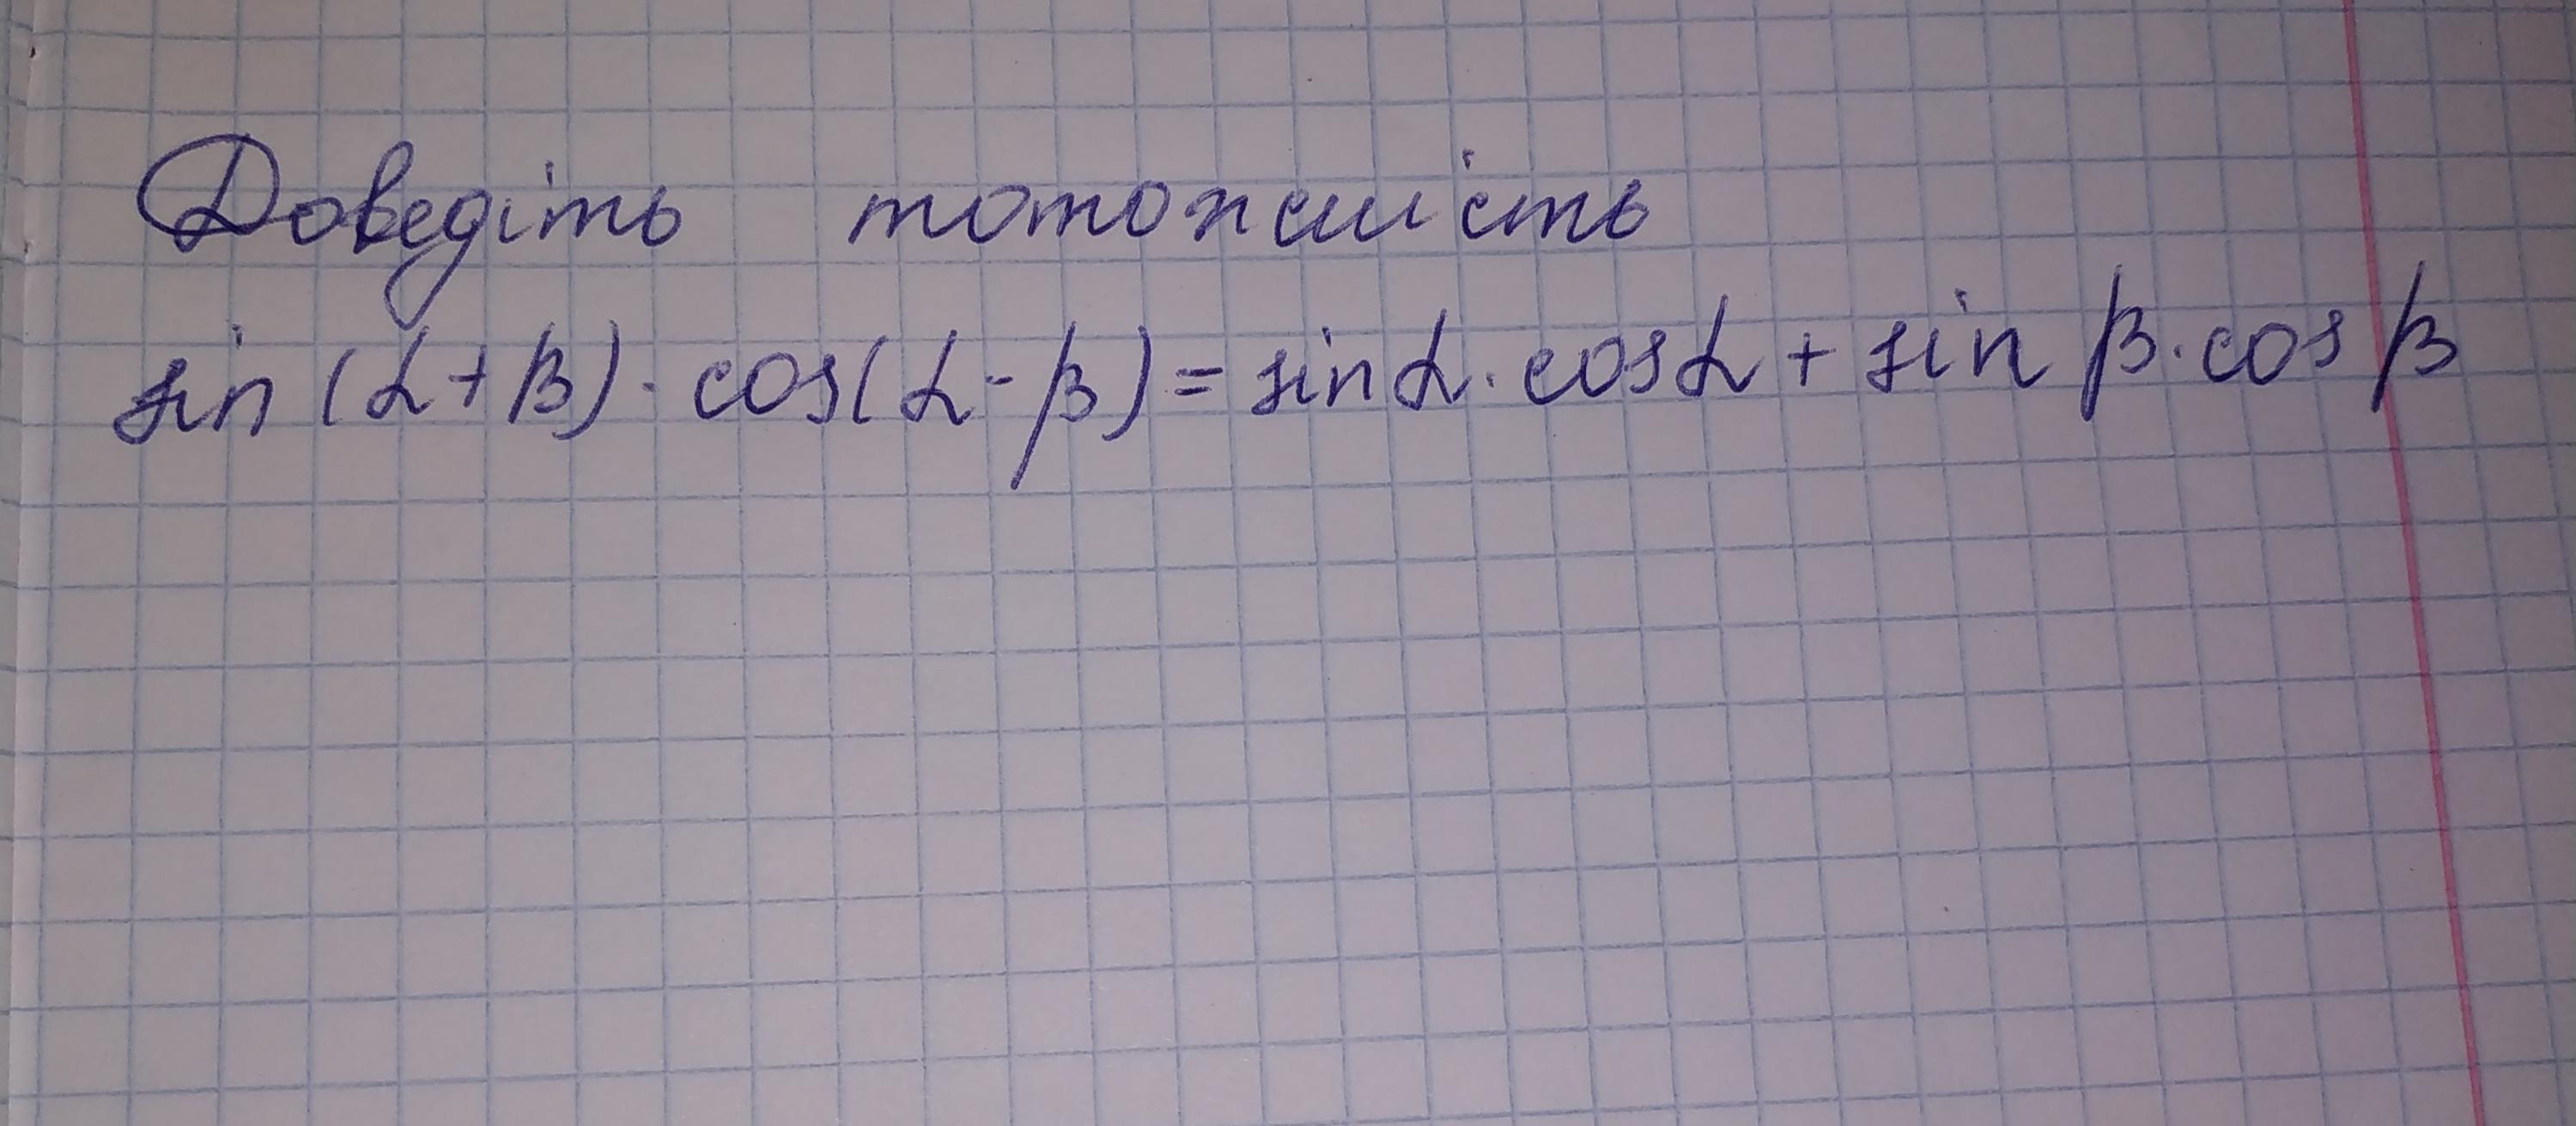 Доведіть тотожність
sin (α+β) · cos(α-β) = sin α · cos α + sin β · cos β